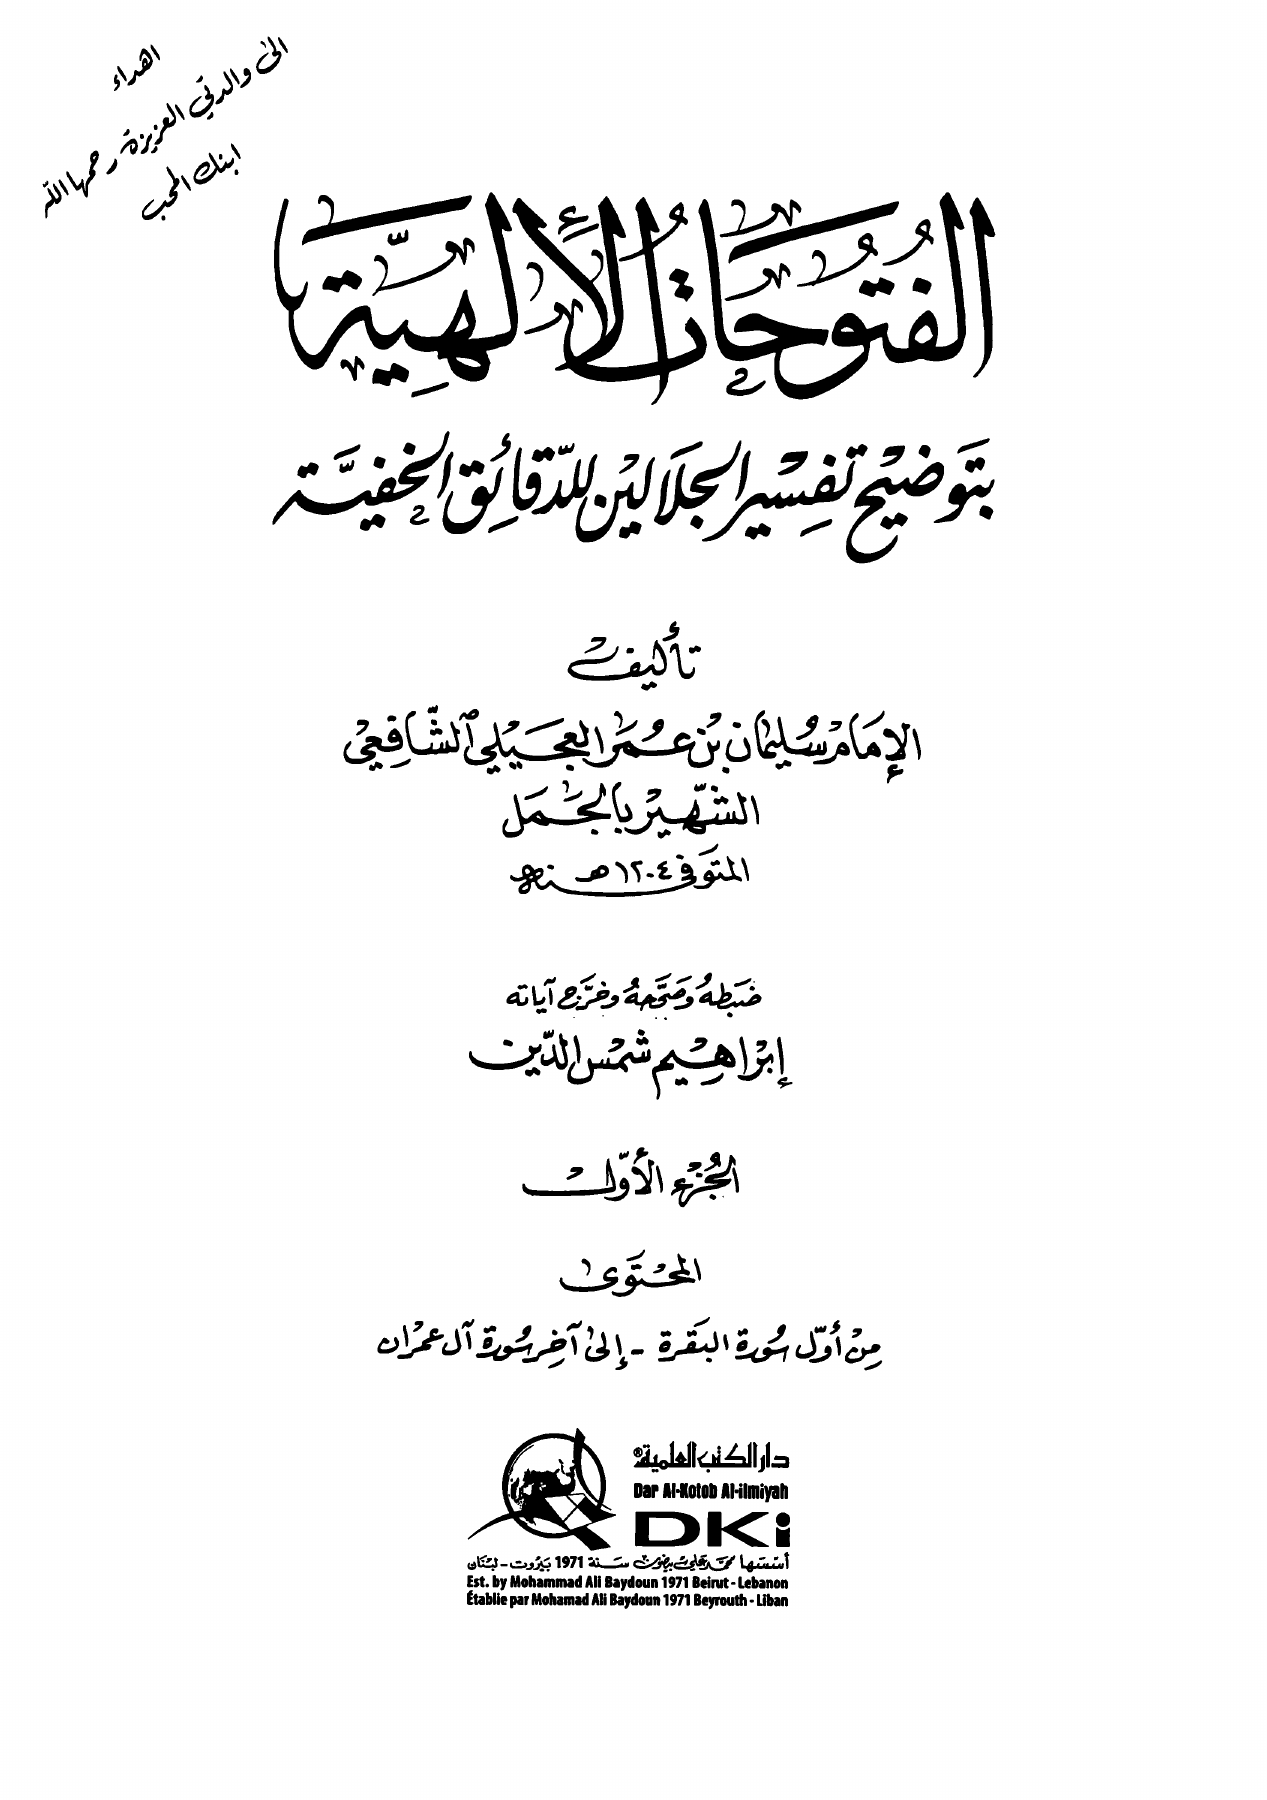 اهداء
الى والدتي العزيزة رحمها الله
ابنك المحب
الفُتُوحَاتُ الإِلٰهِيَّة
بتَوضيْح تفسِيْر الجَلَالَيْن للدّقَائِق الخَفيَّة
تأليفْ
الإمَامْ سُليْمَان بْن عُمَر العجَيْلي الشّافِعيْ
الشّهيْر بالجَمَل
المتوَفى سنة ١٢٠٤ هـ
ضبَطهُ وصَحَّحهُ وخرَّج آياته
إبْراهيْم شمْس الدّين
الجُزْء الأوّل
المحْتوَىٰ
مِنْ أوّل سُورة البَقَرة - إلىٰ آخِر سُورة آل عمْران
دار الكتب العلمية®
Dar Al-Kotob Al-ilmiyah
DKi
أسّسَهَا محمّد علي بيضون سَنة 1971 بَيْرُوت - لبْنَان
Est. by Mohammad Ali Baydoun 1971 Beirut - Lebanon
Établie par Mohamad Ali Baydoun 1971 Beyrouth - Liban